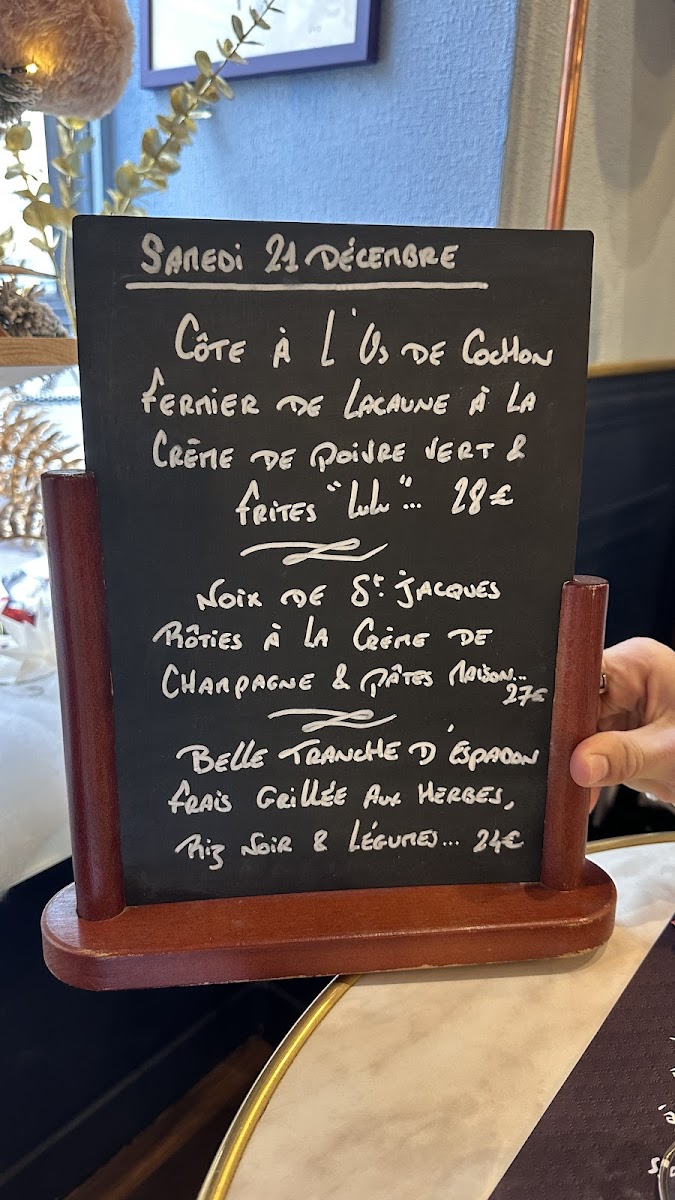 SAMEDI 21 DÉCEMBRE
CÔTE À L'OS DE COCHON
FERMIER DE LACAUNE À LA
CRÈME DE POIVRE VERT &
FRITES "LULU"... 28€
NOIX DE ST. JACQUES
RÔTIES À LA CRÈME DE
CHAMPAGNE & PÂTES MAISON...
27€
BELLE TRANCHE D'ESPADON
FRAIS GRILLÉE AUX HERBES,
RIZ NOIR & LÉGUMES... 24€